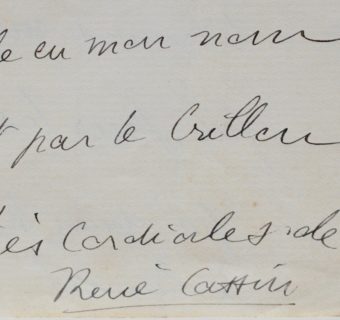 le en mon nom
par le Crillon
cordiales de
René Cassin